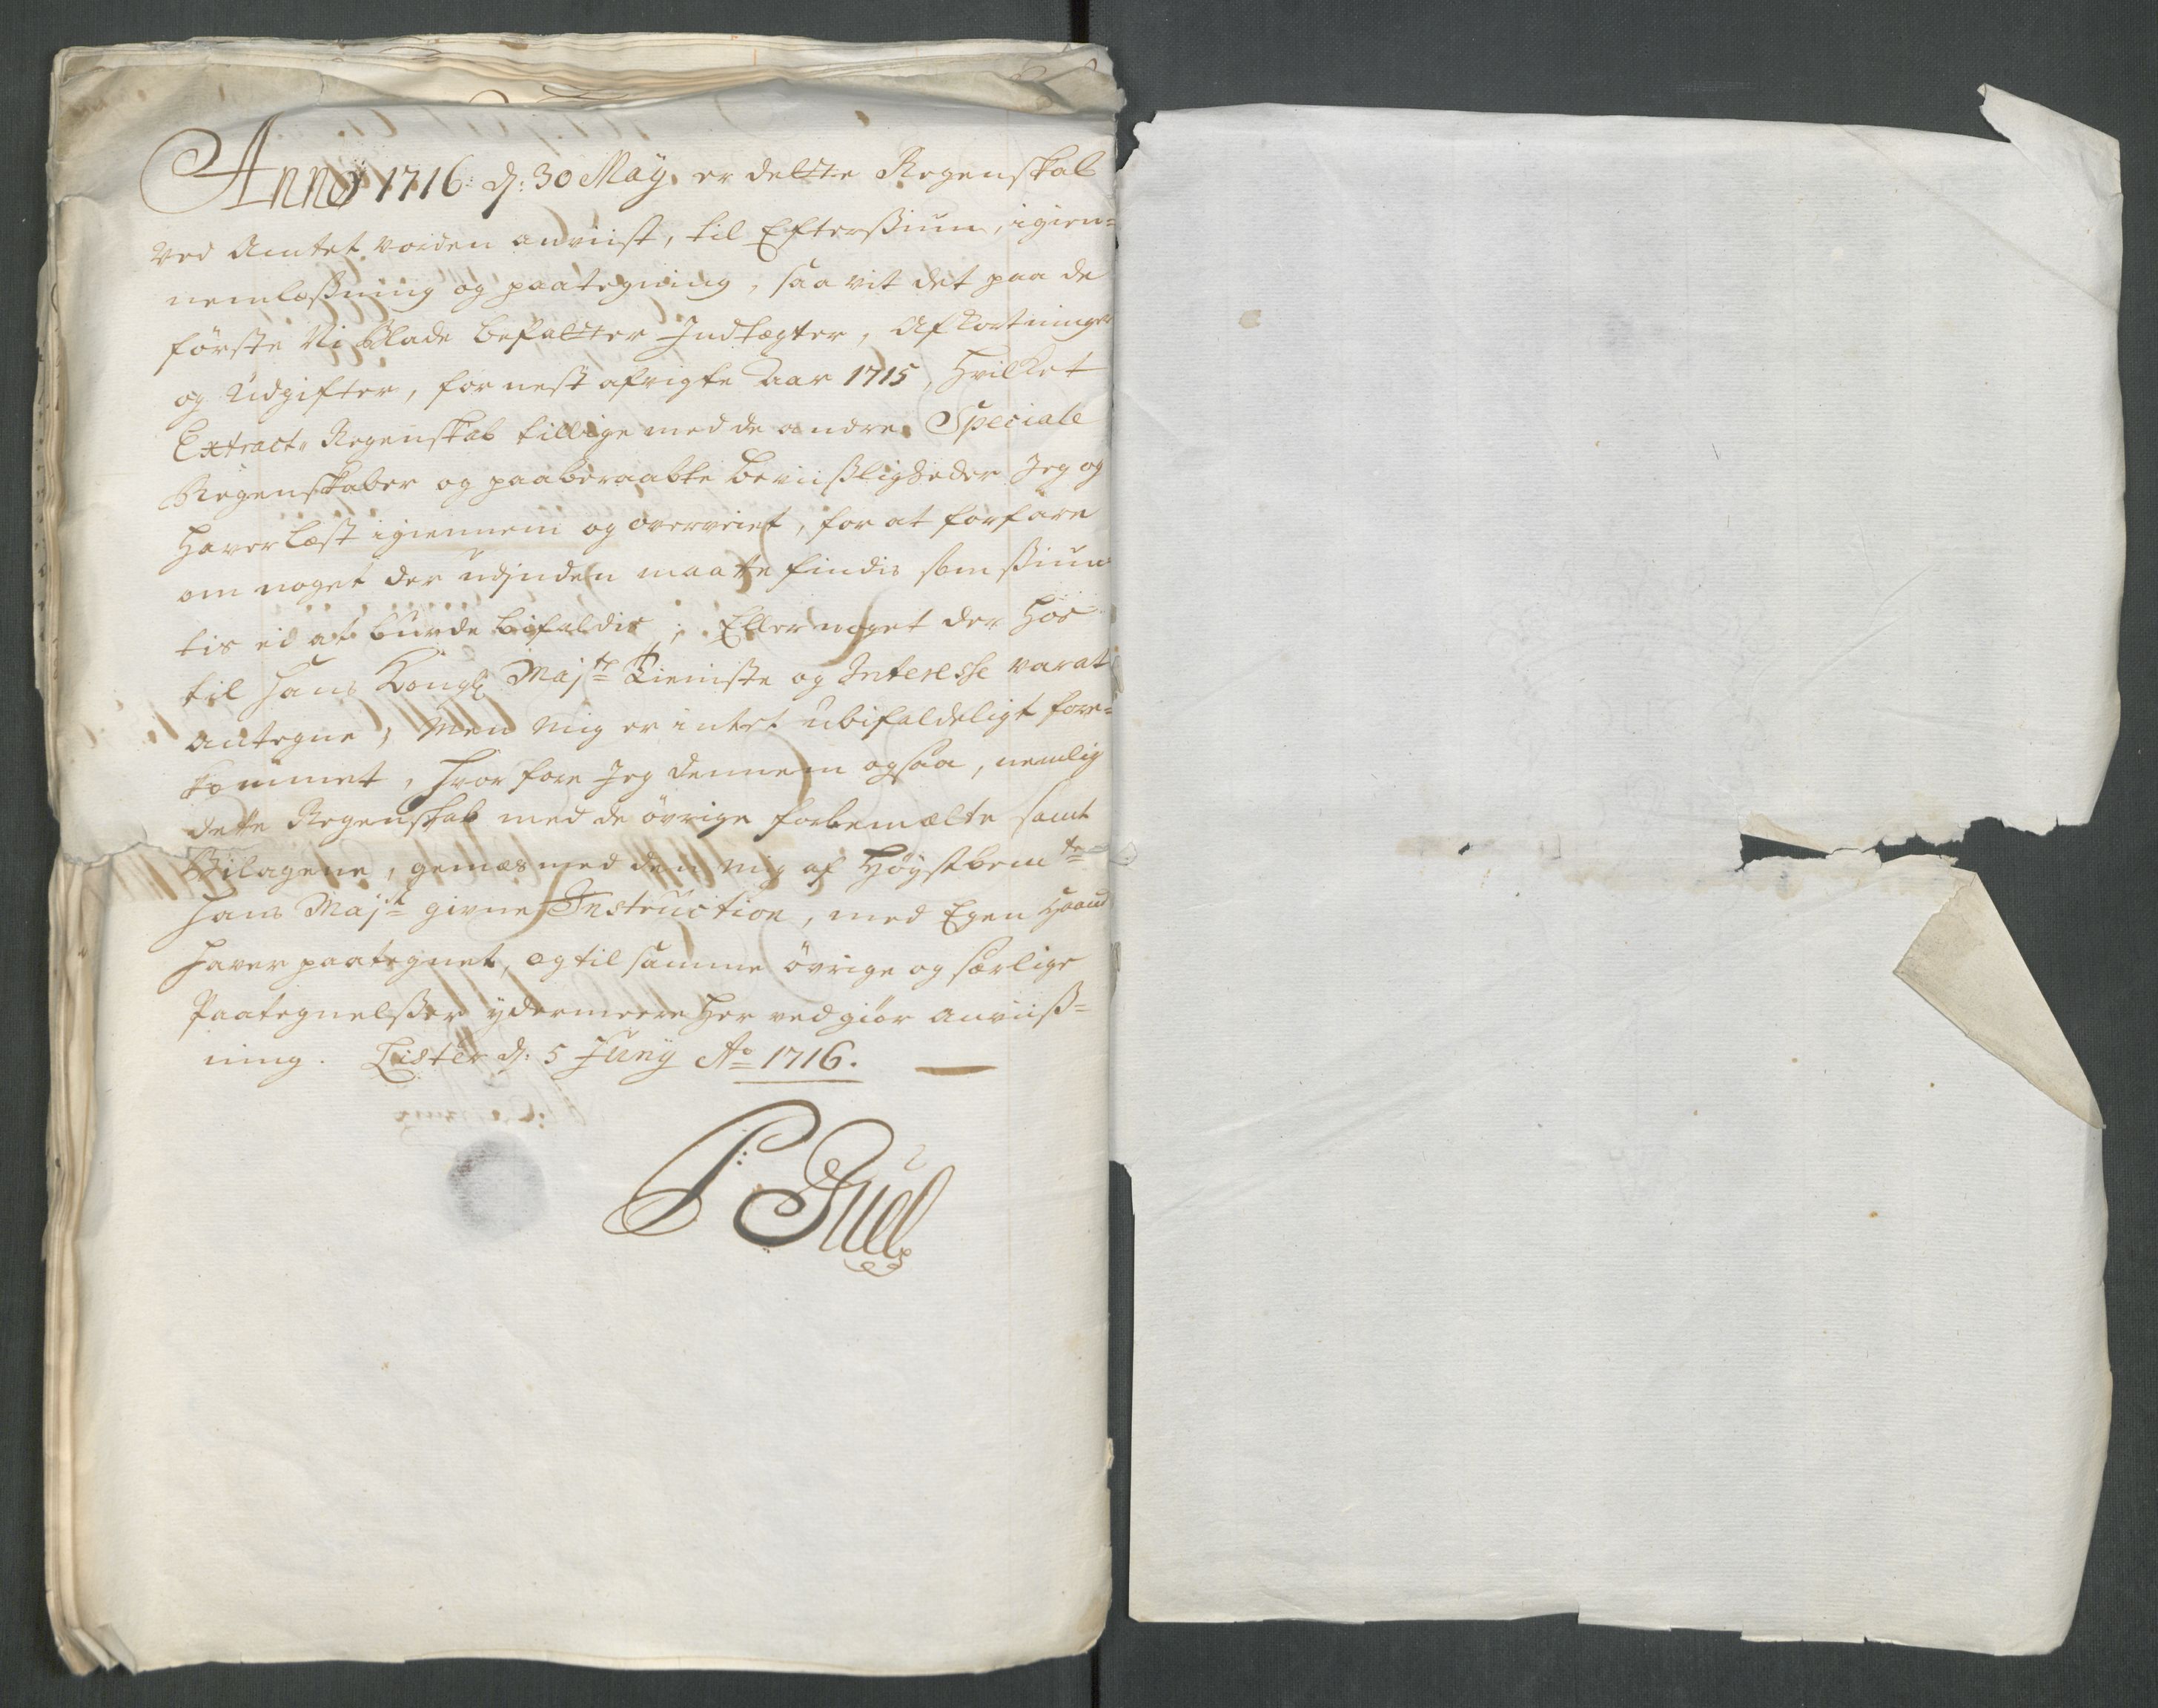 Anno 1716: d: 30 Maÿ er dette Regenskab
ved Amtet vorden anviist, til Eftersiuun, igien-
nemlæsning og paategning, saa vit det paa de
förste Ni blade befatter Indtægter, Afkortninger
og Udgifter, for nest afvigte Aar 1715, Hvilket
Extract Regenskab tillige med de andre Speciale
Regenskaber og paaberaabte beviisligheder Jeg og
Haver læst igiennem og overveiet, for at forfare
om noget der udjnden maatte findis som siun-
tis ei at burde bifaldis; Eller noget der Hör
til Hans Kongl Majts Tienniste og Interesse var at
antegne; Men mig er intet ubifaldeligt fore-
kommet, Hvorfore Jeg dennem ogsaa, nemlig
dette Regenskab med de övrige forbemælte samt
Bilagene, gemæs med den mig af Höÿstbemte
Hans Majt givne Instruction, med Egen Haand
Haver paategnet, og til samme övrige og særlige
Paategnelsser ydermeere Her ved giör anviiss-
ning. Lister d: 5 Junÿ Ao 1716.
P Juel